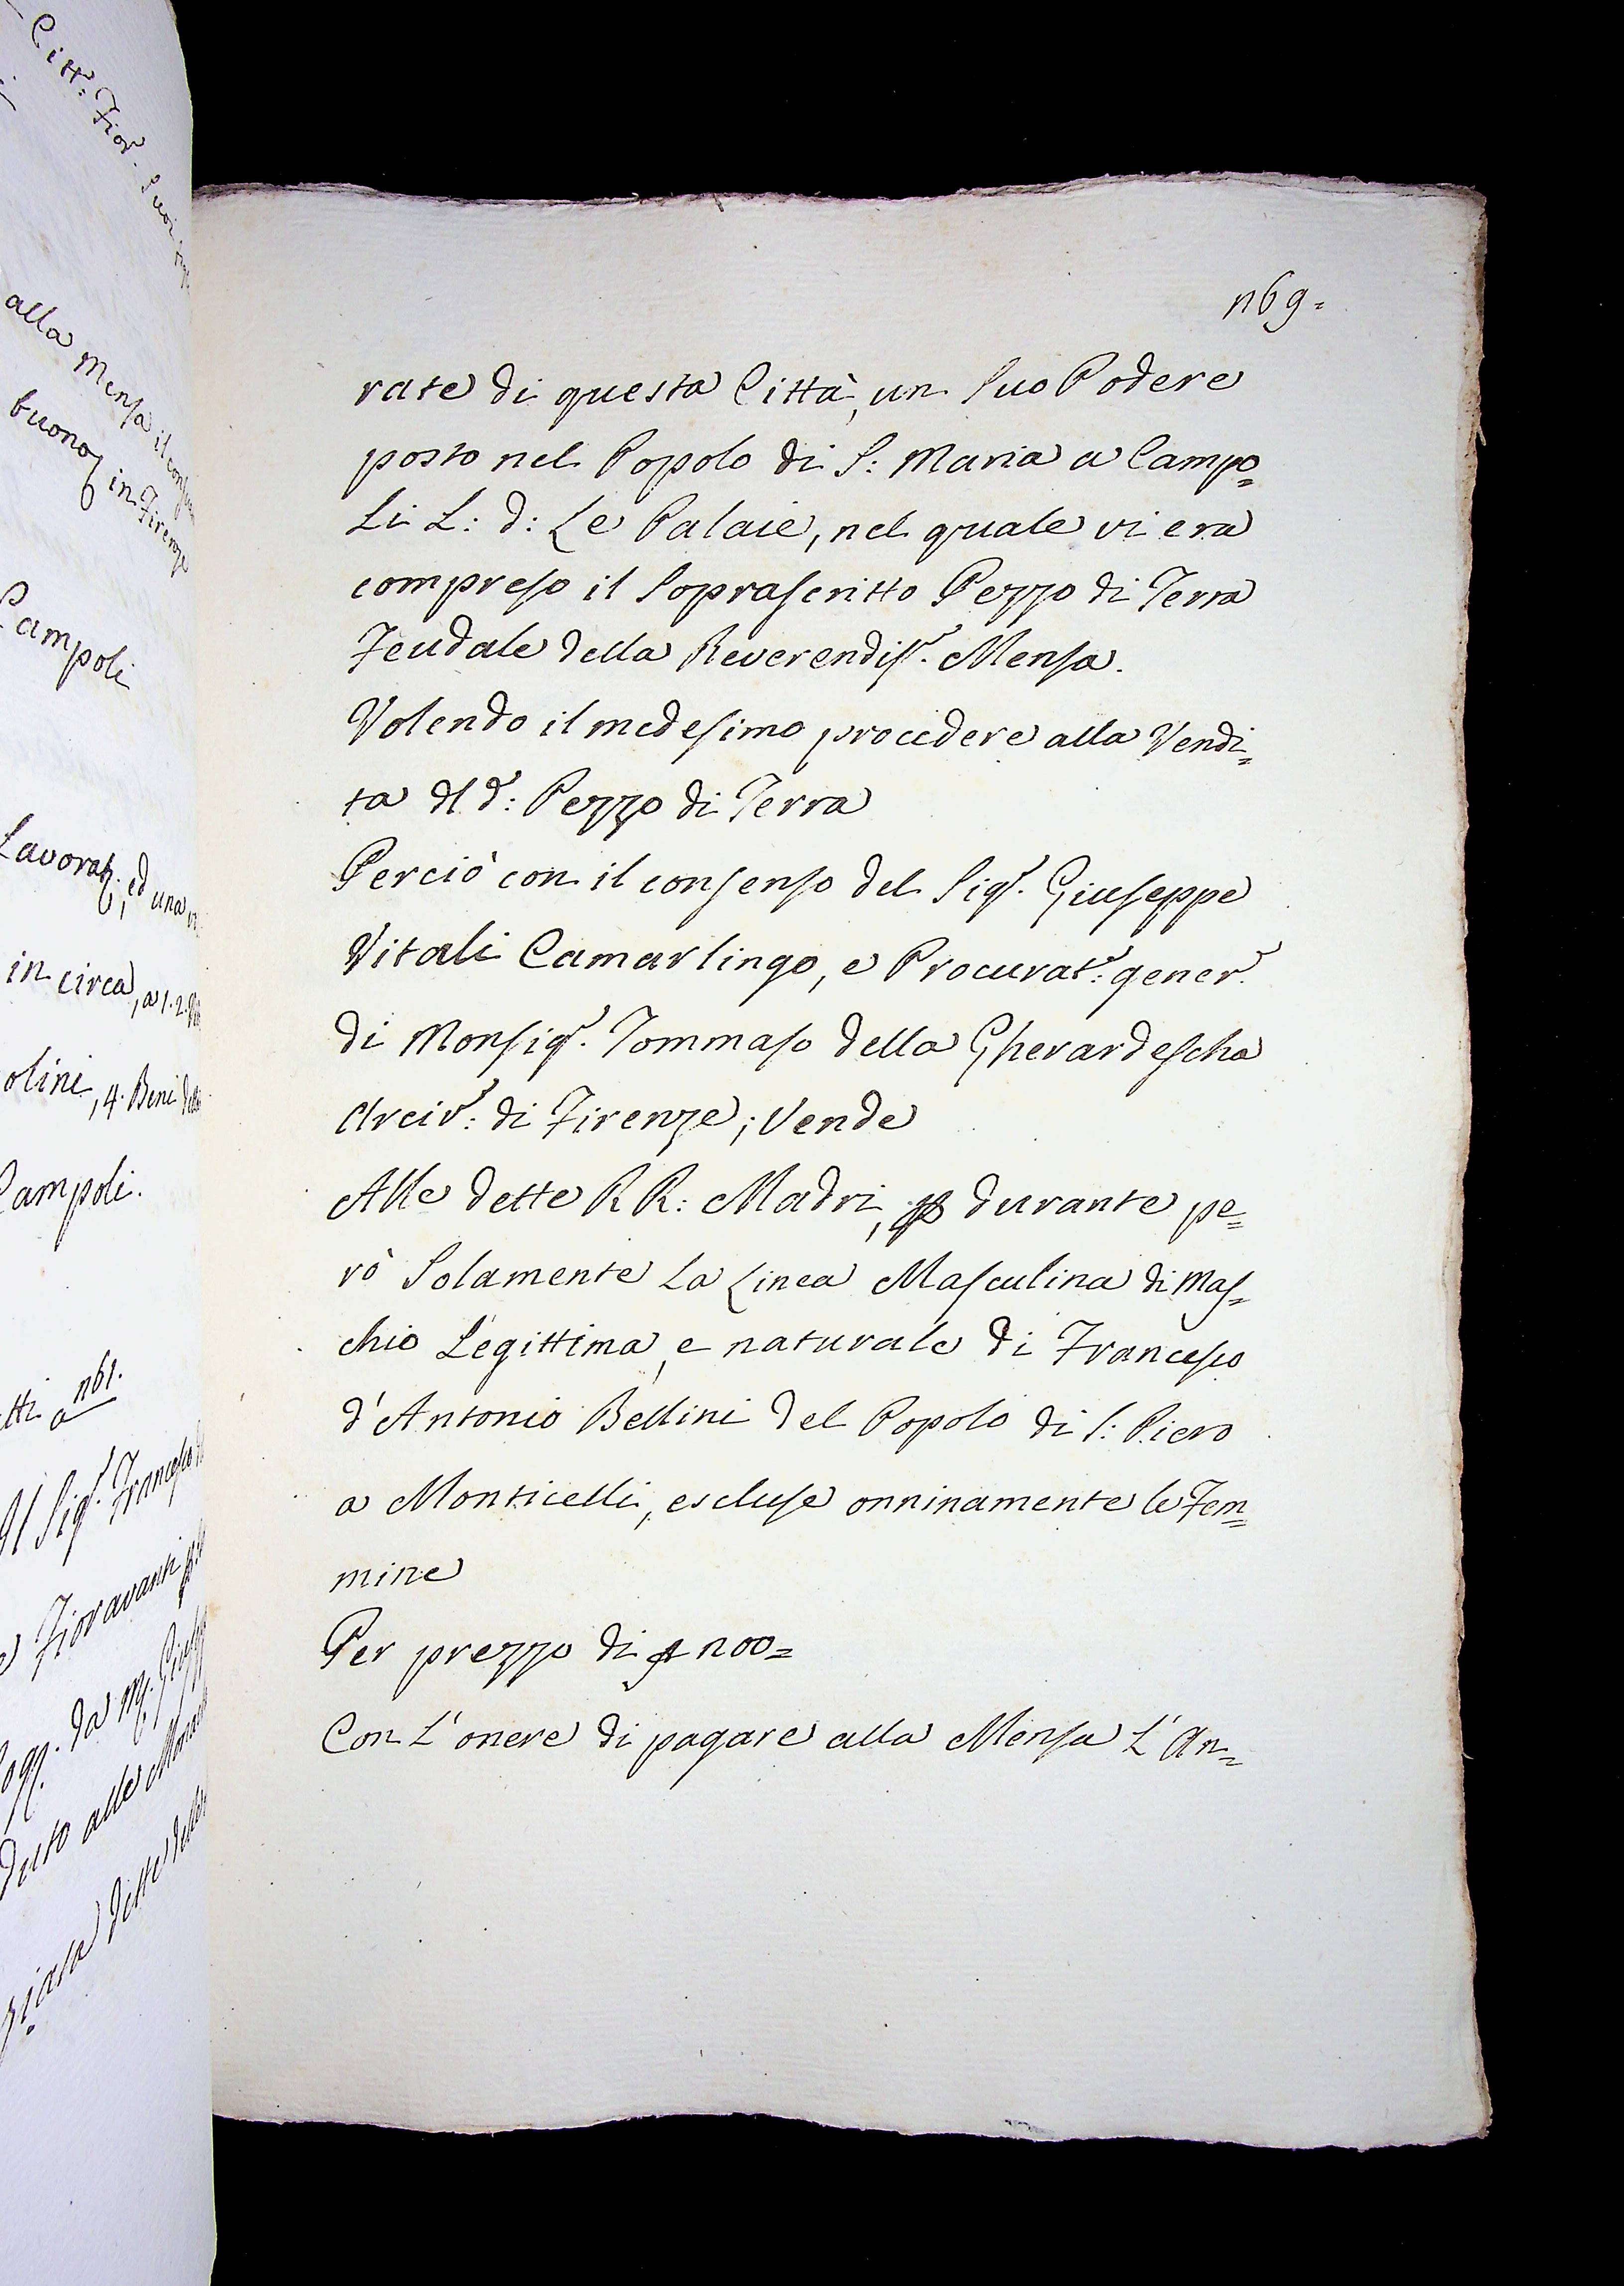 Citt.: Fior. Suoi
alla Mensa il
buona in Firenze
Campoli
Lavorat.; ed una
in circa, a 1. 2.
olini, 4. Beni
Campoli.
tti a n61.
Il Sig.r Francesco
Fioravanti
da
duto alle
dette
n69=
rate di questa Città, un Suo Podere
posto nel Popolo di S: Maria a Campo=
Li L: d: Le Palaie, nel quale vi era
compreso il Soprascritto Pezzo di Terra
Feudale della Reverendis.r Mensa.
Volendo il medesimo procedere alla Vendi=
ta dl d.: Pezzo di Terra
Perciò con il consenso del Sig.r Giuseppe
Vitali Camarlingo, e Procurat.r: gener.r
di Monsig.r Tommaso della Gherardescha
Arciv.: di Firenze; Vende
Alle dette RR: Madri, durante pe=
rò Solamente La Linea Masculina di Mas=
chio Legittima, e naturale di Francesco
d'Antonio Bellini del Popolo di S: Piero
a Monticelli, escluse onninamente le Fem=
mine
Per prezzo di n00=
Con L'onere di pagare alla Mensa L'An=